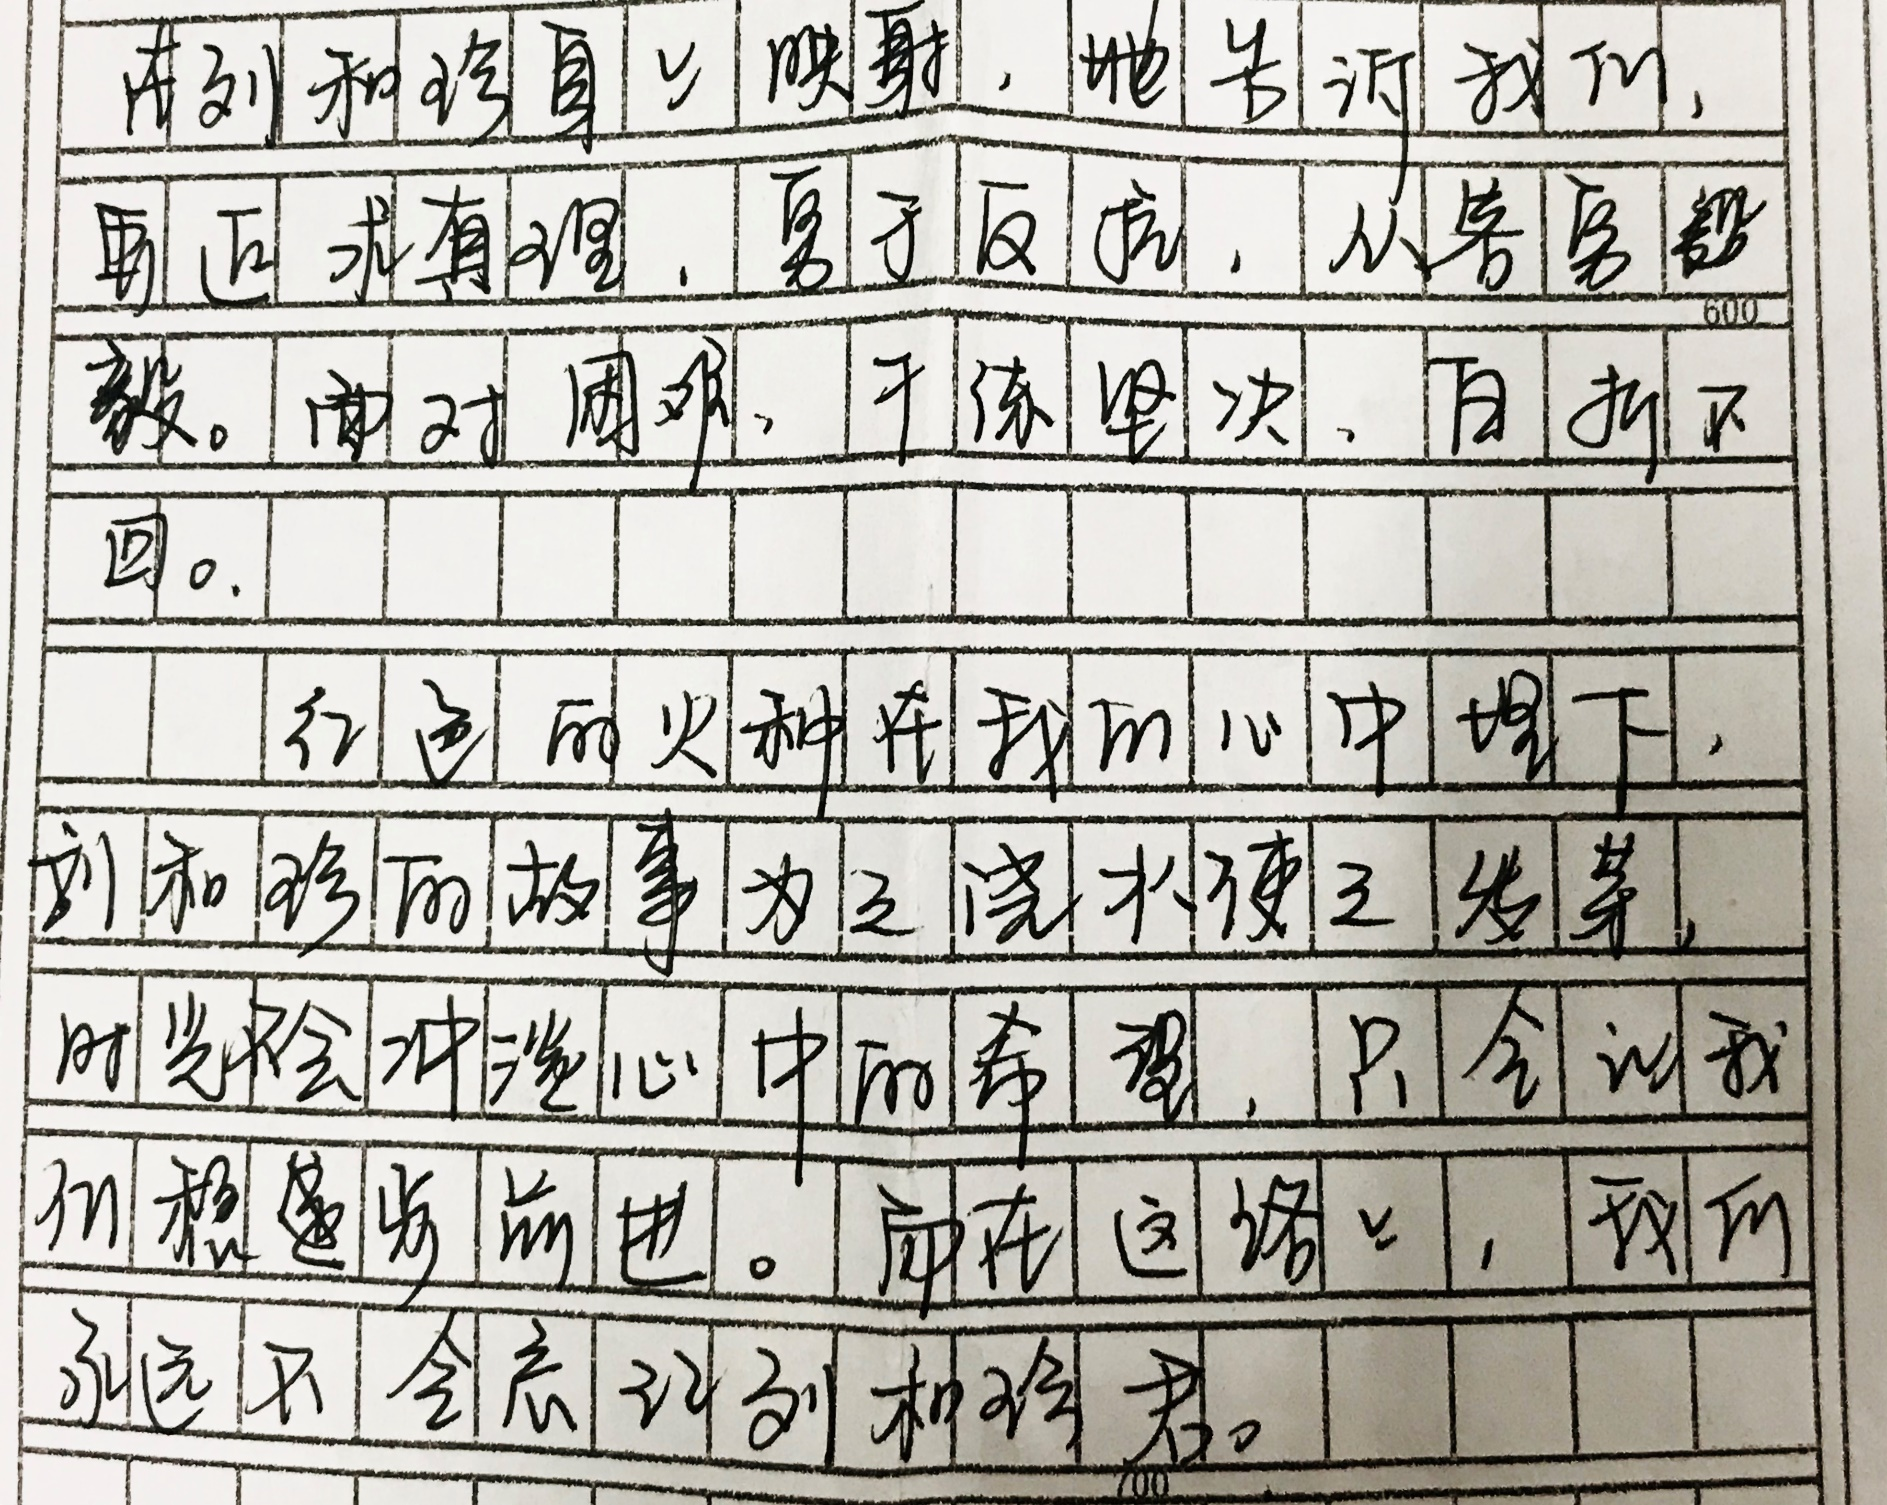 在刘和珍身上映射，她告诉我们，
要追求真理，勇于反抗，从容勇毅
600
毅。面对困难，干练坚决，百折不
回。
红色的火种在我们心中埋下，
刘和珍的故事为之浇水使之发芽，
时光不会冲淡心中的希望，只会让我
们稳步前进。而在这路上，我们
永远不会忘记刘和珍君。
700